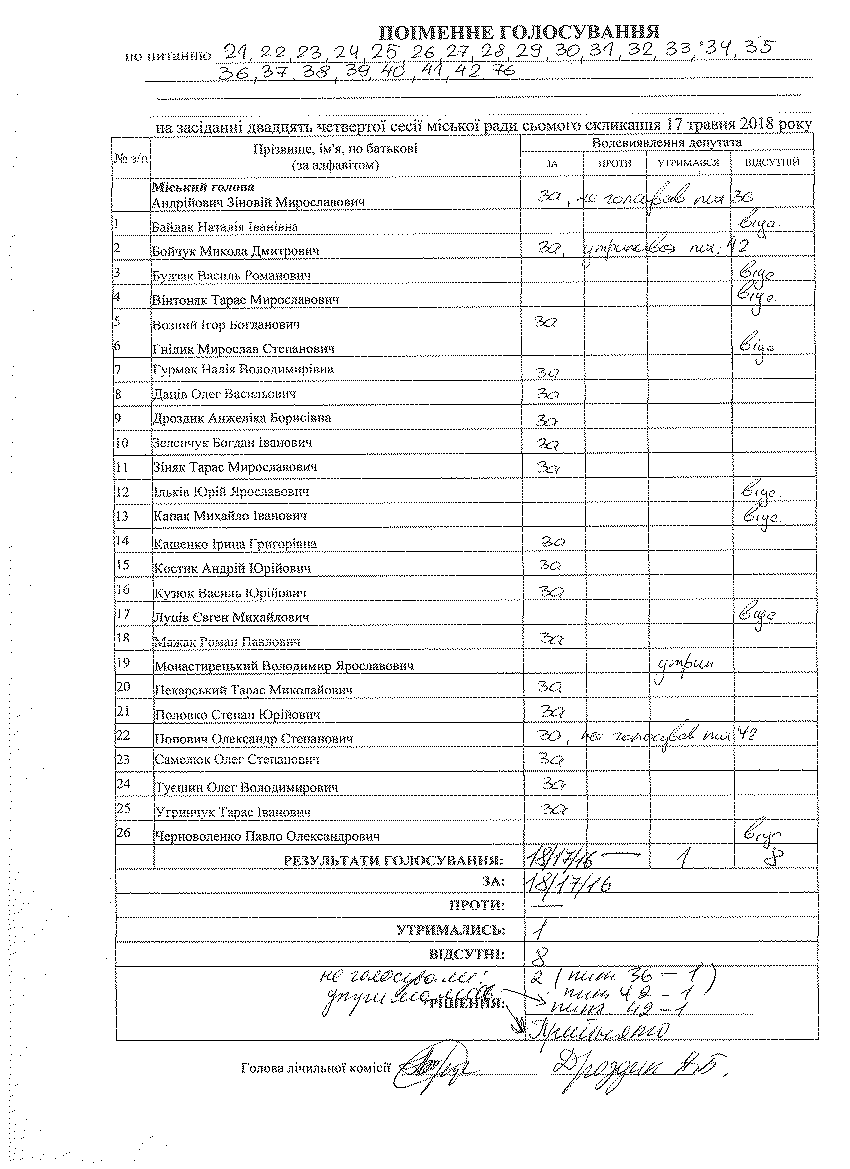 ПОІМЕННЕ ГОЛОСУВАННЯ
по питанню 21, 22, 23, 24, 25, 26, 27, 28, 29, 30, 31, 32, 33, 34, 35
36, 37, 38, 39, 40, 41, 42, 76
на засіданні двадцять четвертої сесії міської ради сьомого скликання 17 травня 2018 року
№ з/п Прізвище, ім'я, по батькові (за алфавітом) Волевиявлення депутата
ЗА ПРОТИ УТРИМАВСЯ ВІДСУТНІЙ
Міський голова
Андрійович Зіновій Мирославович за, не голосував пит 36
1 Байдак Наталія Іванівна відс.
2 Бойчук Микола Дмитрович за, утримався пит. 42
3 Будзак Василь Романович відс
4 Вінтоняк Тарас Мирославович відс.
5 Возний Ігор Богданович за
6 Гнідик Мирослав Степанович відс
7 Гурмак Надія Володимирівна за
8 Даців Олег Васильович за
9 Дроздик Анжеліка Борисівна за
10 Зеленчук Богдан Іванович за
11 Зіняк Тарас Мирославович за
12 Ільків Юрій Ярославович відс.
13 Капак Михайло Іванович відс.
14 Кащенко Ірина Григорівна за
15 Костик Андрій Юрійович за
16 Кузюк Василь Юрійович за
17 Луців Євген Михайлович відс
18 Мажак Роман Павлович за
19 Монастирецький Володимир Ярославович утрим
20 Пекарський Тарас Миколайович за
21 Половко Степан Юрійович за
22 Попович Олександр Степанович за, не голосував пит 42
23 Самолюк Олег Степанович за
24 Туєшин Олег Володимирович за
25 Угринчук Тарас Іванович за
26 Черноволенко Павло Олександрович відс.
РЕЗУЛЬТАТИ ГОЛОСУВАННЯ: 18/17/16 — 1 8
ЗА: 18/17/16
ПРОТИ: —
УТРИМАЛИСЬ: 1
ВІДСУТНІ: 8
не голосували: 2 (пит 36 – 1)
пит 42 – 1
РІШЕННЯ: пит 42 – 1
Прийнято
Голова лічильної комісії Дроздик А.Б.